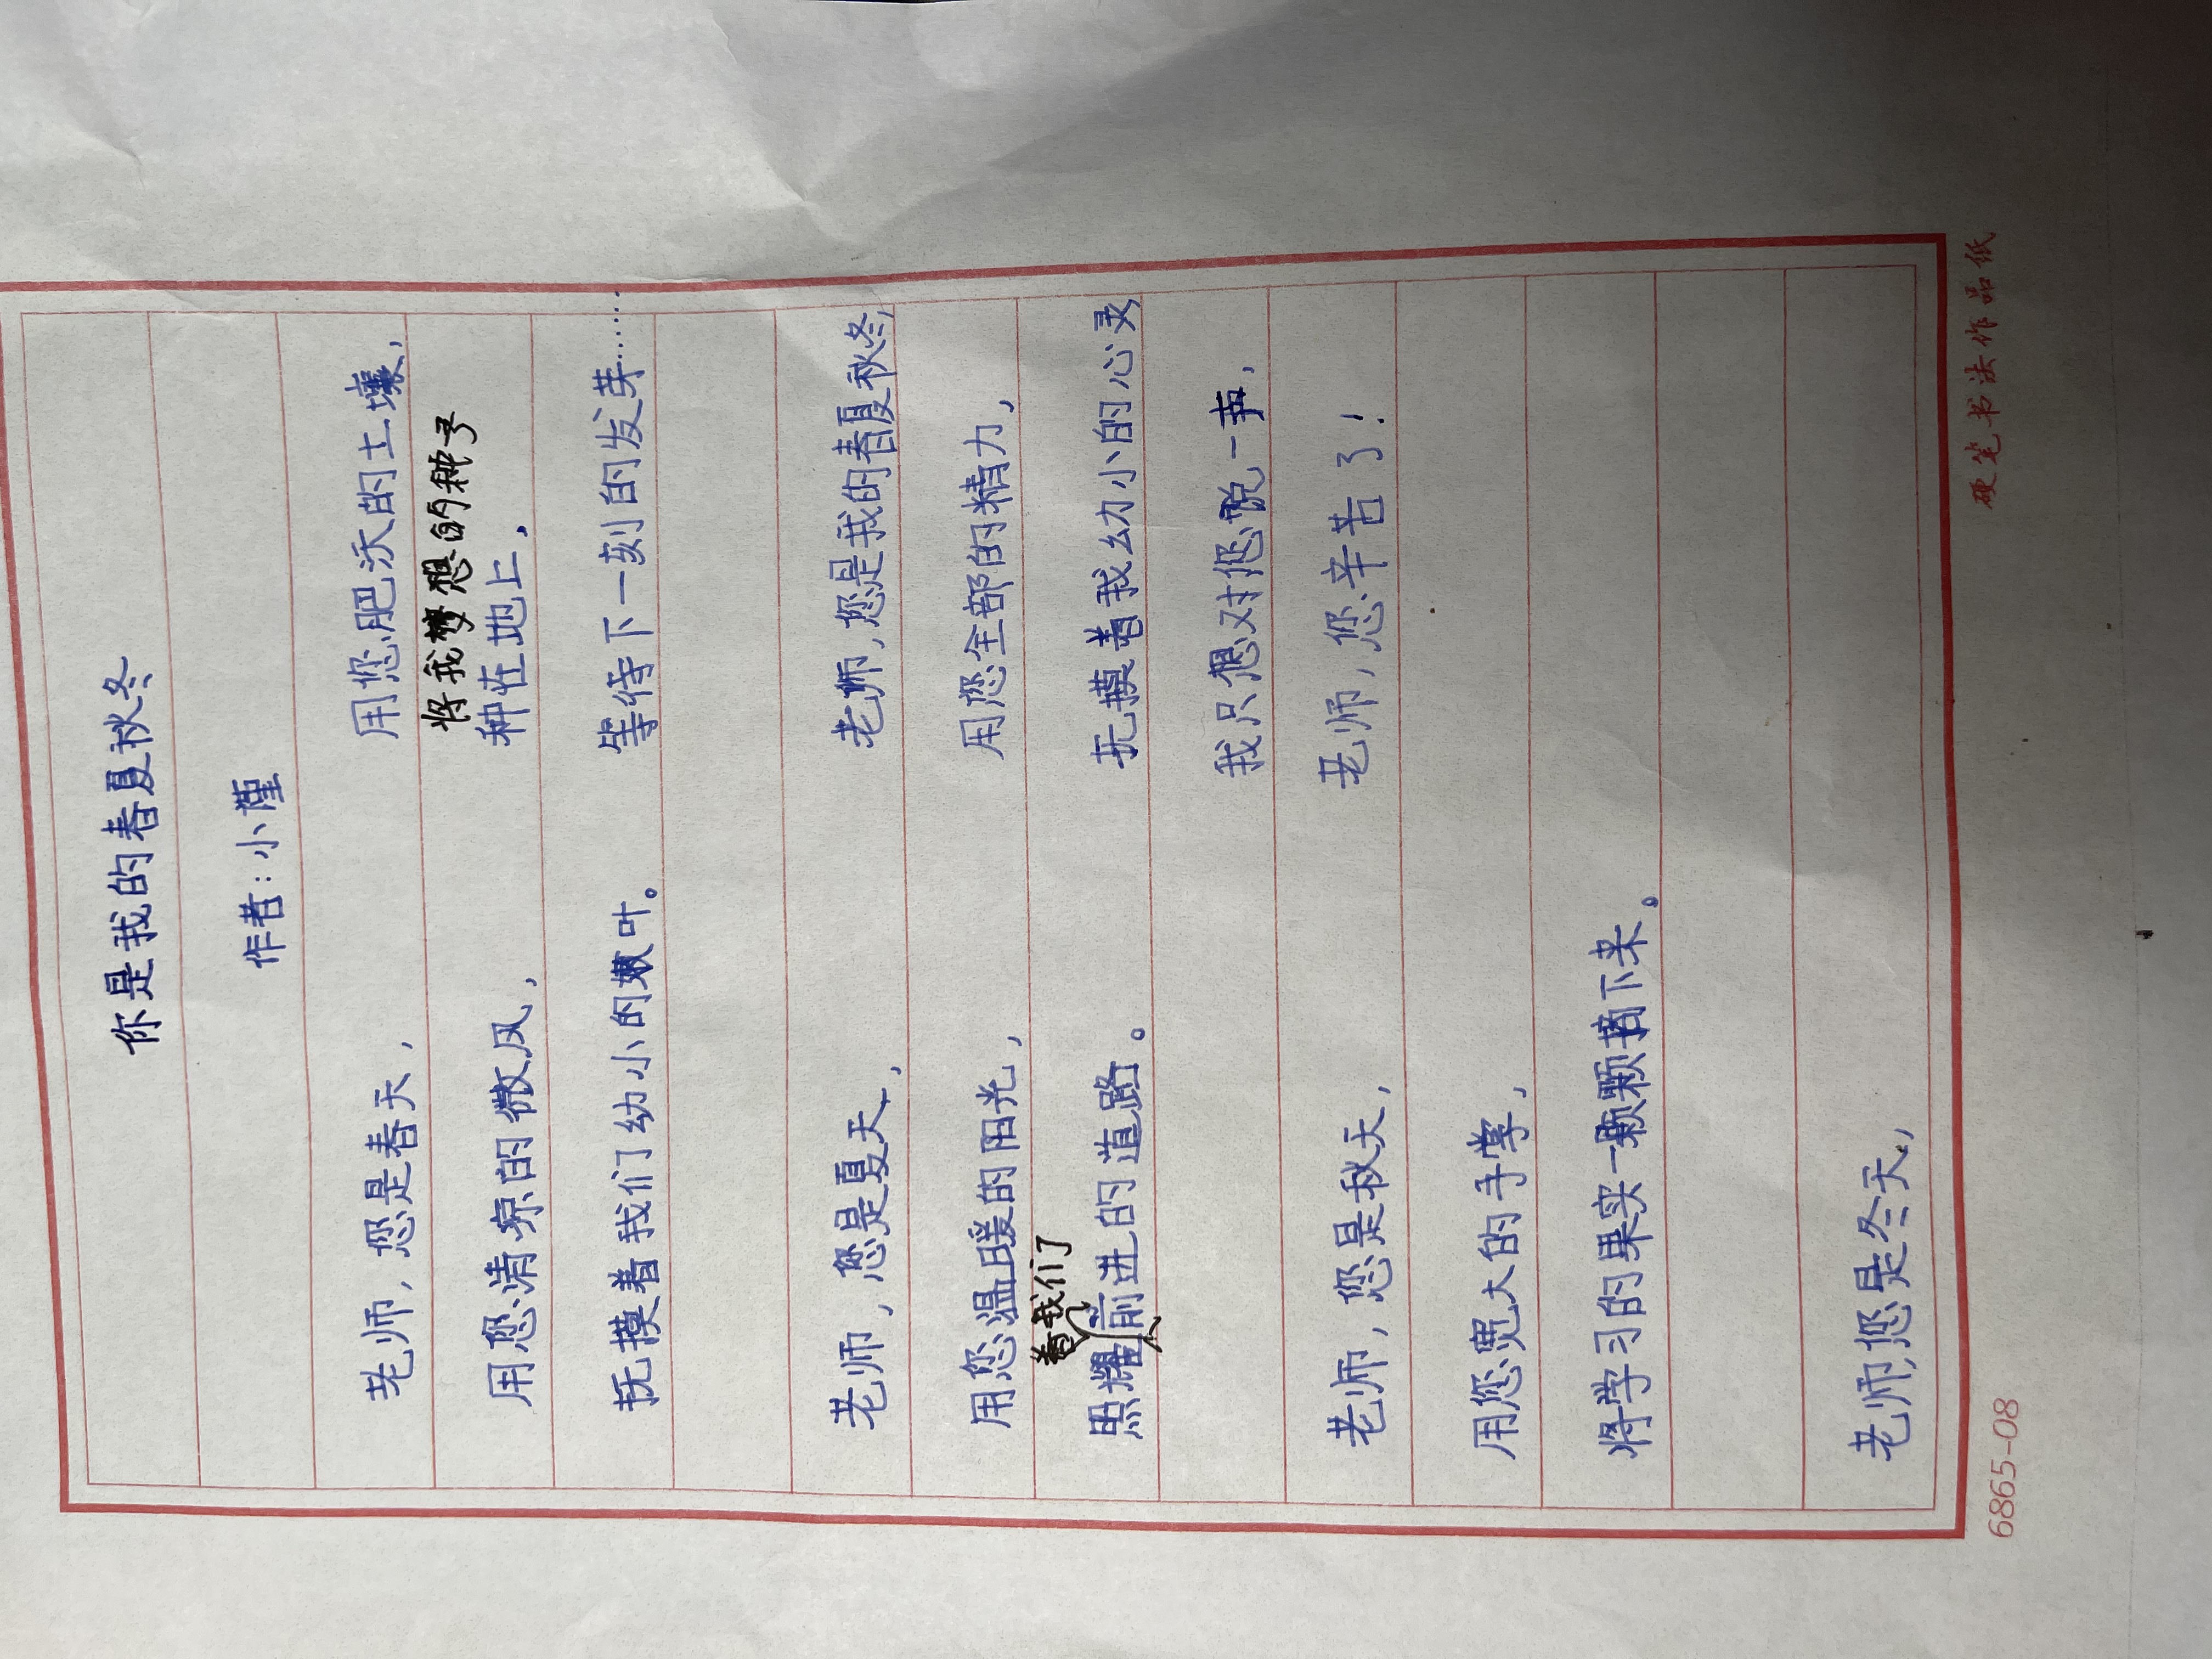 你是我的春夏秋冬
作者:小瑾
老师,您是春天,
用您清凉的微风,
抚摸着我们幼小的嫩叶。
老师,您是夏天,
用您温暖的阳光,
着我们了
照耀前进的道路。
老师,您是秋天,
用您宽大的手掌,
将学习的果实一颗颗摘下来。
老师,您是冬天,
用您肥沃的土壤,
将我梦想的种子
种在地上,
等待下一刻的发芽……
老师,您是我的春夏秋冬,
用您全部的精力,
抚摸着我幼小的心灵
我只想对您说一声,
老师,您辛苦了!
6865-08
硬笔书法作品纸